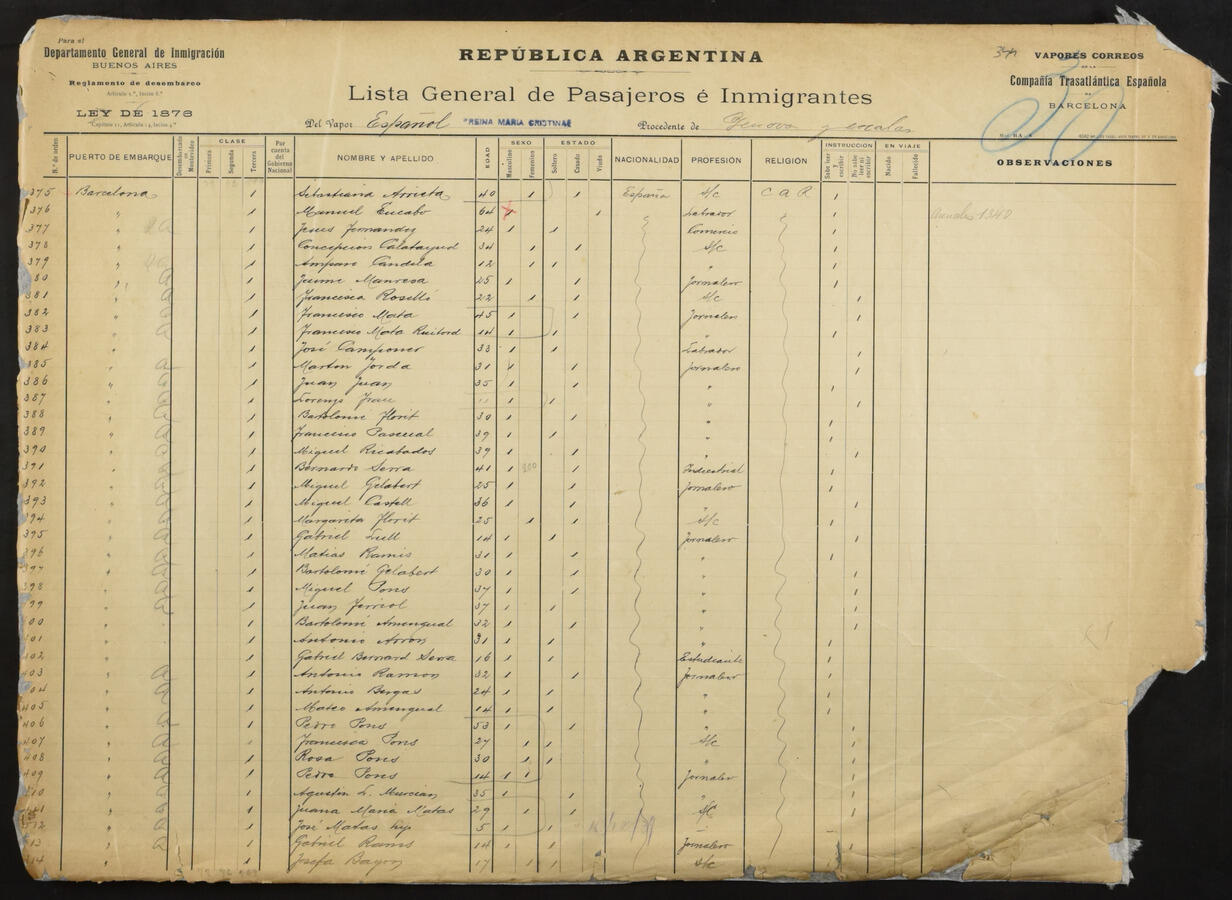 Para el
Departamento General de Inmigración
BUENOS AIRES
Reglamento de desembarco
Artículo 2.°, Inciso 8.°
LEY DE 1876
Capítulo 11, Artículo 14, Inciso 4.°
REPÚBLICA ARGENTINA
Lista General de Pasajeros é Inmigrantes
Del Vapor Español "REINA MARIA CRISTINA" Procedente de Genova y escalas
VAPORES CORREOS
DE LA
Compañía Trasatlántica Española
DE
BARCELONA
N.° de orden PUERTO DE EMBARQUE Desembarcado en Montevideo CLASE Primera Segunda Tercera Por cuenta del Gobierno Nacional NOMBRE Y APELLIDO EDAD SEXO Masculino Femenino ESTADO Soltero Casado Viudo NACIONALIDAD PROFESIÓN RELIGIÓN INSTRUCCIÓN Sabe leer y escribir No sabe leer ni escribir EN VIAJE Nacido Fallecido OBSERVACIONES
375 Barcelona Sebastiana Arrieta 40 España S/c C A R
376 " Manuel Eucabo 64 Labrador
377 " Jesus Fernandez 24 Comercio
378 " Concepcion Calatayud 34 S/c
379 " Amparo Candela 12 "
80 " Jaume Manresa 25 Jornalero
381 " Francisca Roselló 22 S/c
382 " Francisco Mata 45 Jornalero
383 " Francisco Mata 14 "
384 " José Campomar 33 Labrador
385 " Martin Jorda 31 Jornalero
386 " Juan Juan 35 "
387 " Lorenzo "
388 " Bartolomé Florit 30 "
389 " Francisco Pascual 39 "
390 " Miguel 39 "
391 " Bernardo Serra 41 Industrial
392 " Miguel Gelabert 25 Jornalero
393 " Miguel Castell 36 "
394 " Margarita Florit 25 S/c
395 " Gabriel Lull 14 Jornalero
396 " Matias Ramis 31 "
397 " Bartolomé Gelabert 30 "
398 " Miguel Pons 37 "
99 " Juan Ferriol 37 "
00 " Bartolomé Amengual 32 "
401 " Antonio Arrom 31 "
402 " Gabriel Bernard Serra 16 Estudiante
403 " Antonio Ramon 32 Jornalero
404 " Antonio Bergas 24 "
405 " Mateo Amengual 14 "
406 " Pedro Pons 53 "
407 " Francisca Pons 27 S/c
408 " Rosa Pons 30 "
409 " Pedro Pons 14 Jornalero
410 " Agustin L. Murcian 35 "
411 " Juana Maria Matas 29 S/C
412 " José Matas hijo 5 "
413 " Gabriel Ramis 14 Jornalero
414 " Josefa Bayon 17 S/c